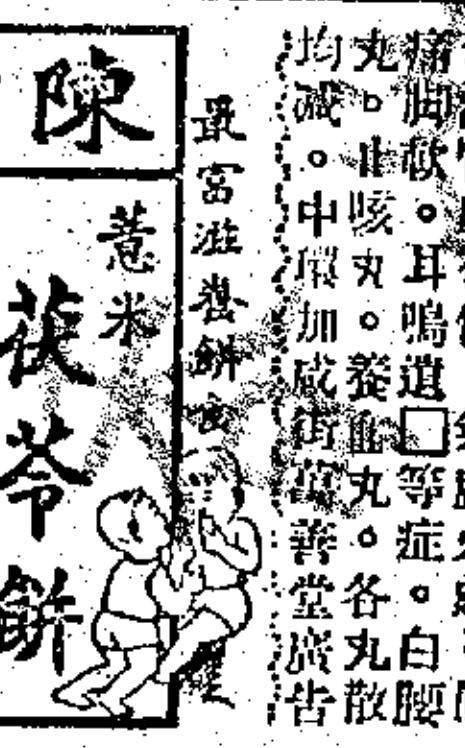 痛脚軟。耳鳴遺□等症。白腰
丸。止咳丸。養血丸。各丸散
均减。中環加咸街萬善堂廣告
最富滋養餅
陳
薏米
茯苓餅